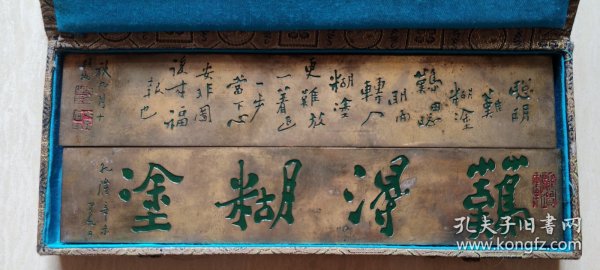 聰明
難
糊塗
難由聰
明而
轉入
糊塗
更難放
一着退
一步
當下心
安非圖
後來福
報也
秋九月十
難得糊塗
乾隆辛未
孔夫子旧书网
www.kongfz.com